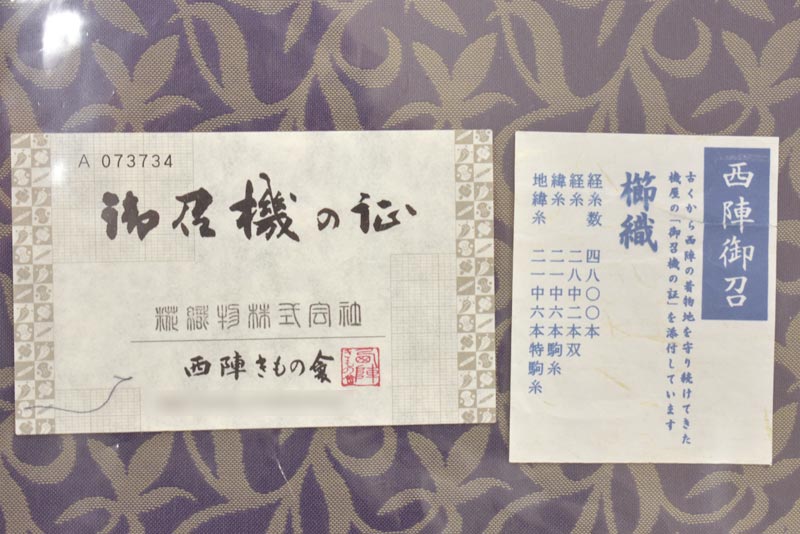 A 073734
御召機の証
織物株式会社
西陣きもの會
西陣きもの會
西陣御召
古くから西陣の着物地を守り続けてきた
機屋の「御召機の証」を添付しています
櫛織
経糸数 四八〇〇本
経糸 二八中二本双
緯糸 二一中六本駒糸
地緯糸 二一中六本特駒糸